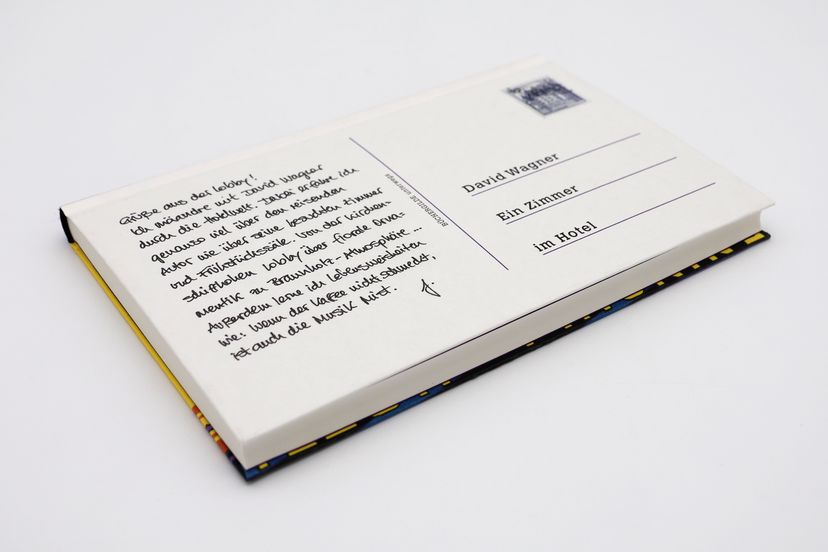 Grüße aus der Lobby!
Ich mäandre mit David Wagner
durch die Hotelwelt. Dabei erfahre ich
genauso viel über den reisenden
Autor wie über seine besuchten Zimmer
und Frühstückssäle. Von der kirchen-
schiffhohen Lobby über florale Orna-
mentik zu Braunholz-Atmosphäre ...
Außerdem lerne ich Lebensweisheiten
wie: Wenn der Kaffee nicht schmeckt,
ist auch die Musik Mist.
BÜCHERGILDE unterwegs
David Wagner
Ein Zimmer
im Hotel